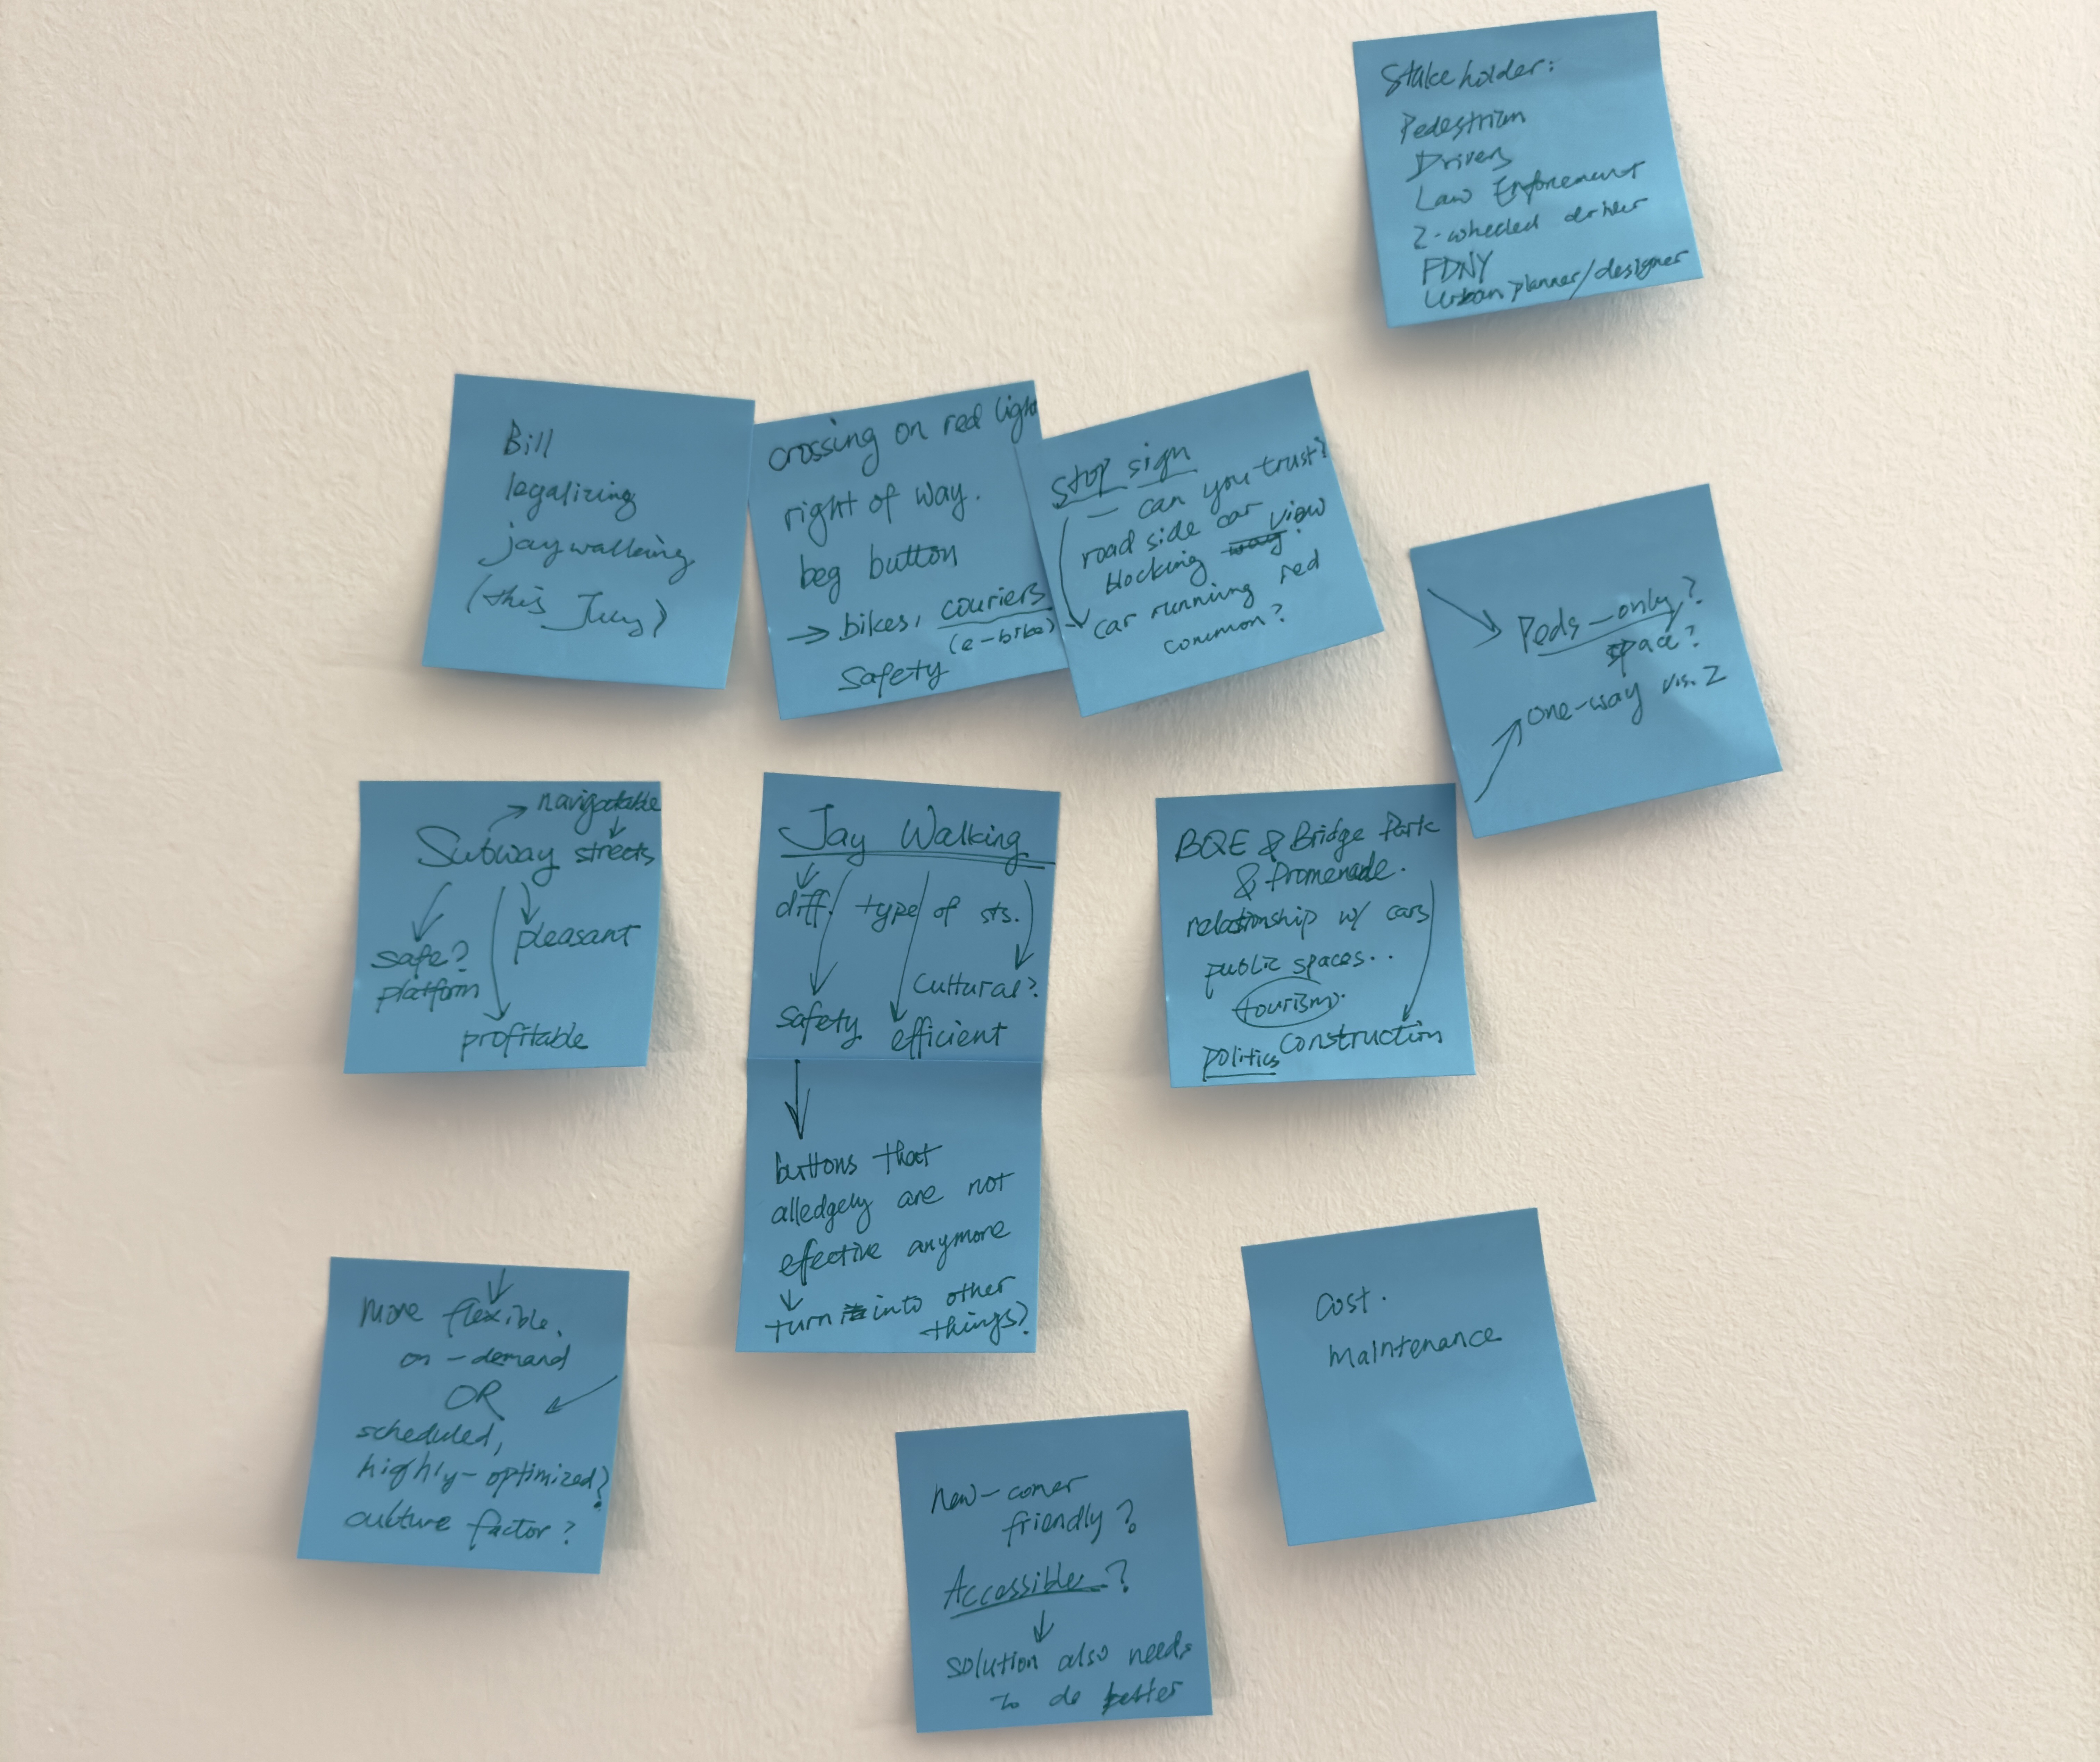 Stakeholder:
Pedestrian
Drivers
Law Enforcement
2-wheeled driver
FDNY
Urban planner/designer
Bill
legalizing
jaywalking
(this July)
crossing on red light
right of way.
beg button
→ bikes, couriers
(e-bike)
safety
Stop sign
— can you trust?
road side car
blocking way view
car running red
common?
Peds-only?
space?
one-way vs. 2
navigatable
Subway streets
pleasant
safe?
platform
profitable
Jay Walking
diff. type of sts.
cultural?
safety efficient
buttons that
alledgely are not
efective anymore
turn into other
things?
BQE & Bridge Park
& Promenade.
relationship w/ cars
public spaces..
tourism.
construction
politics
more flexible.
on-demand
OR
scheduled,
highly-optimized?
culture factor?
Cost.
maintenance
new-comer
friendly?
Accessible?
solution also needs
to do better